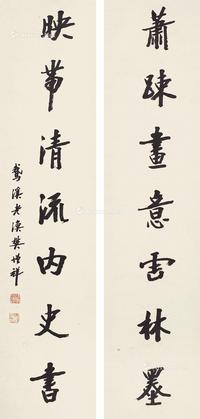 蕭疎畫意雲林墨
映帶清流内史書
鵞溪老漁樊增祥